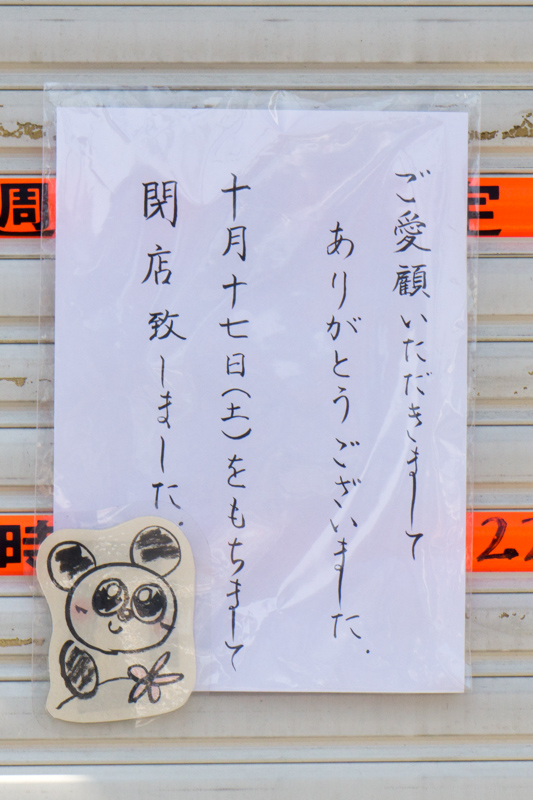 ご愛顧いただきまして
ありがとうございました.
十月十七日(土)をもちまして
閉店致しました.
定
22
週
時